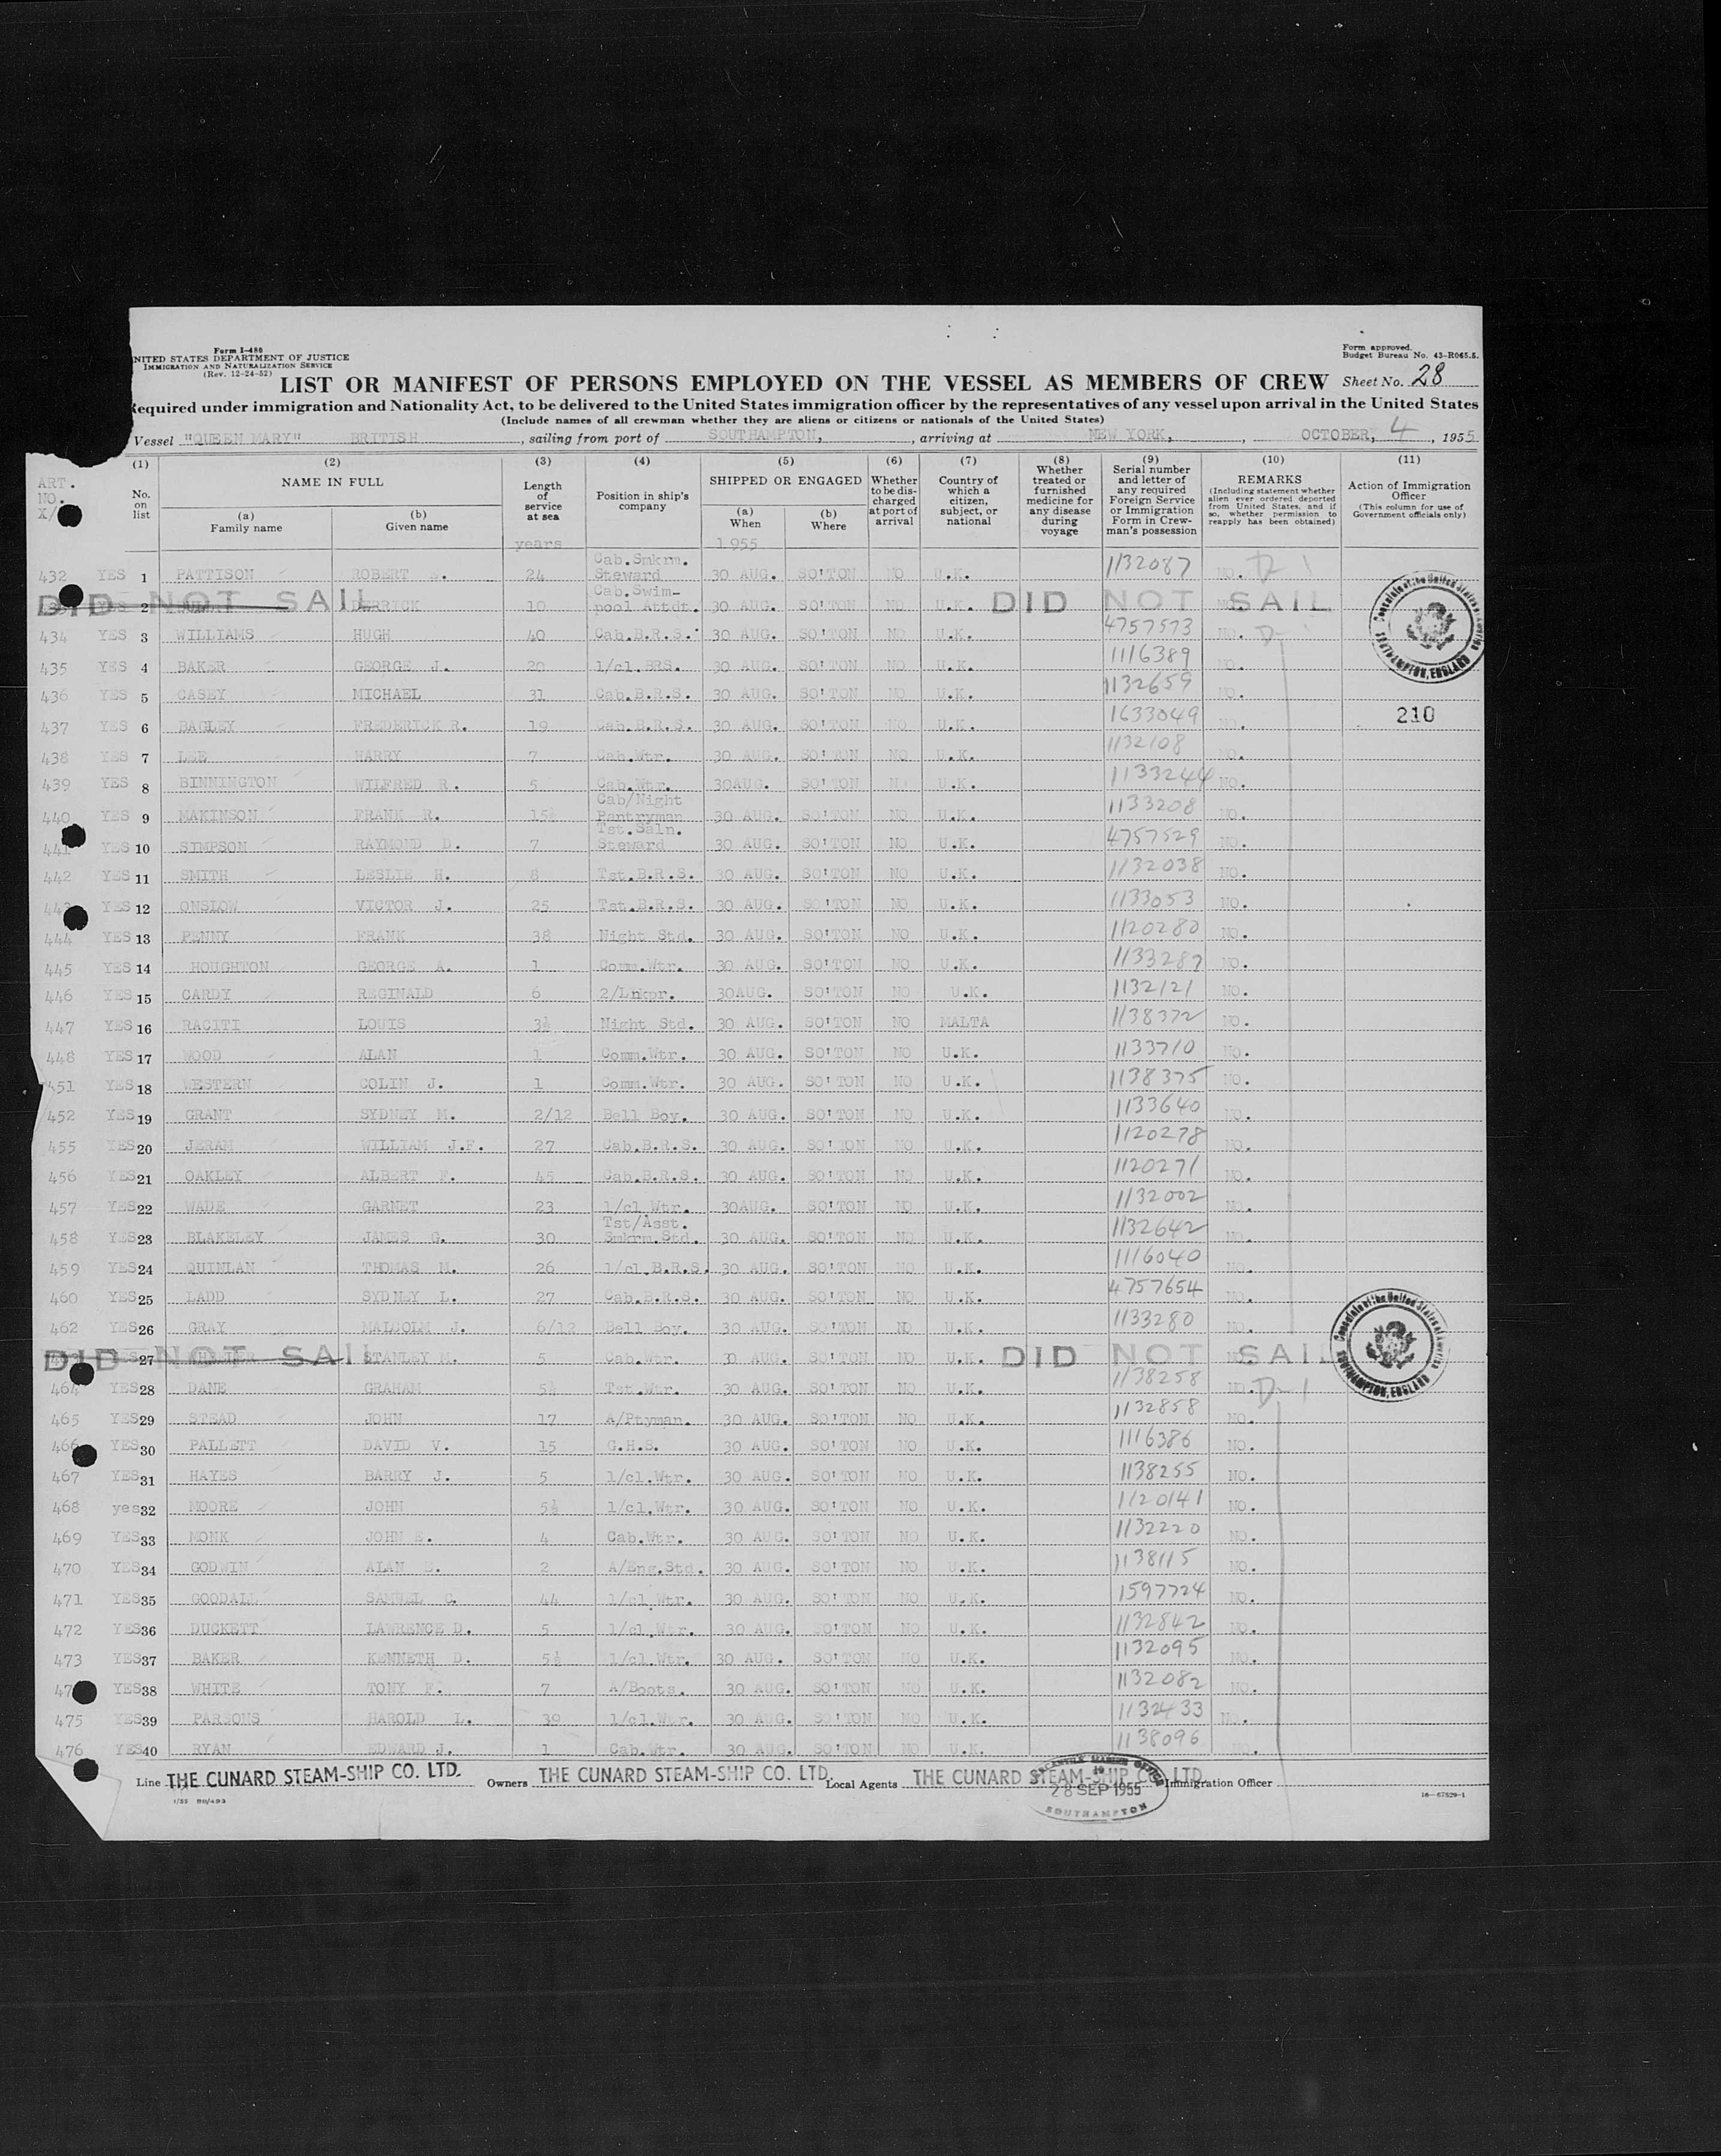 Form I-480
UNITED STATES DEPARTMENT OF JUSTICE
IMMIGRATION AND NATURALIZATION SERVICE
(Rev. 12-24-52)
Form approved.
Budget Bureau No. 43-R065.5.
LIST OR MANIFEST OF PERSONS EMPLOYED ON THE VESSEL AS MEMBERS OF CREW Sheet No. 28
Required under immigration and Nationality Act, to be delivered to the United States immigration officer by the representatives of any vessel upon arrival in the United States
(Include names of all crewman whether they are aliens or citizens or nationals of the United States)
Vessel "QUEEN MARY" BRITISH, sailing from port of SOUTHAMPTON, , arriving at NEW YORK, , OCTOBER, 4 , 1955
(1) (2) (3) (4) (5) (6) (7) (8) (9) (10) (11)
ART. NO. X/
No. on list
NAME IN FULL
(a) Family name
(b) Given name
Length of service at sea
Position in ship's company
SHIPPED OR ENGAGED
(a) When
(b) Where
Whether to be discharged at port of arrival
Country of which a citizen, subject, or national
Whether treated or furnished medicine for any disease during voyage
Serial number and letter of any required Foreign Service or Immigration Form in Crewman's possession
REMARKS
(Including statement whether alien ever ordered deported from United States, and if so, whether permission to reapply has been obtained)
Action of Immigration Officer
(This column for use of Government officials only)
years 1955
432 YES 1 PATTISON ROBERT Cab.Smkrm. Steward 24 30 AUG. SO'TON NO U.K. 1132087 NO. D-1
DID NOT SAIL 2 DERRICK 10 Cab.Swim-pool Attdt. 30 AUG. SO'TON U.K. DID NOT SAIL
434 YES 3 WILLIAMS HUGH 40 Cab.B.R.S. 30 AUG. SO'TON NO U.K. 4757573 NO. D-1
435 YES 4 BAKER GEORGE J. 20 1/cl.BRS. 30 AUG. SO'TON NO U.K. 1116389 NO.
436 YES 5 CASEY MICHAEL 31 Cab.B.R.S. 30 AUG. SO'TON NO U.K. 1132659 NO.
437 YES 6 BAGLEY FREDERICK R. 19 Cab.B.R.S. 30 AUG. SO'TON NO U.K. 1633049 NO. 210
438 YES 7 LEE HARRY 7 Cab.Wtr. 30 AUG. SO'TON NO U.K. 1132108 NO.
439 YES 8 BINNINGTON WILFRED R. 5 Cab.Wtr. 30AUG. SO'TON NO U.K. 1133244 NO.
440 YES 9 MAKINSON FRANK R. 15½ Cab/Night Pantryman 30 AUG. SO'TON NO U.K. 1133208 NO.
441 YES 10 SIMPSON RAYMOND D. 7 Tst.Saln. Steward 30 AUG. SO'TON NO U.K. 4757529 NO.
442 YES 11 SMITH LESLIE H. 8 Tst.B.R.S. 30 AUG. SO'TON NO U.K. 1132038 NO.
443 YES 12 ONSLOW VICTOR J. 25 Tst.B.R.S. 30 AUG. SO'TON NO U.K. 1133053 NO.
444 YES 13 PENNY FRANK 38 Night Std. 30 AUG. SO'TON NO U.K. 1120280 NO.
445 YES 14 HOUGHTON GEORGE A. 1 Comm.Wtr. 30 AUG. SO'TON NO U.K. 1133287 NO.
446 YES 15 CARDY REGINALD 6 2/Lnkpr. 30AUG. SO'TON NO U.K. 1132121 NO.
447 YES 16 RACITI LOUIS 3½ Night Std. 30 AUG. SO'TON NO MALTA 1138372 NO.
448 YES 17 WOOD ALAN 1 Comm.Wtr. 30 AUG. SO'TON NO U.K. 1133710 NO.
451 YES 18 WESTERN COLIN J. 1 Comm.Wtr. 30 AUG. SO'TON NO U.K. 1138375 NO.
452 YES 19 GRANT SYDNEY M. 2/12 Bell Boy. 30 AUG. SO'TON NO U.K. 1133640 NO.
455 YES 20 JERAM WILLIAM J.F. 27 Cab.B.R.S. 30 AUG. SO'TON NO U.K. 1120278 NO.
456 YES 21 OAKLEY ALBERT F. 45 Cab.B.R.S. 30 AUG. SO'TON NO U.K. 1120271 NO.
457 YES 22 WADE GARNET 23 1/cl.Wtr. 30AUG. SO'TON NO U.K. 1132002 NO.
458 YES 23 BLAKELEY JAMES G. 30 Tst/Asst. Smkrm.Std. 30 AUG. SO'TON NO U.K. 1132642 NO.
459 YES 24 QUINLAN THOMAS M. 26 1/cl.B.R.S. 30 AUG. SO'TON NO U.K. 1116040 NO.
460 YES 25 LADD SYDNEY L. 27 Cab.B.R.S. 30 AUG. SO'TON NO U.K. 4757654 NO.
462 YES 26 GRAY MALCOLM J. 6/12 Bell Boy. 30 AUG. SO'TON NO U.K. 1133280 NO.
DID NOT SAIL 27 STANLEY M. 5 Cab.Wtr. 30 AUG. SO'TON NO U.K. DID NOT SAIL
464 YES 28 DANE GRAHAM 5½ Tst.Wtr. 30 AUG. SO'TON NO U.K. 1138258 NO. D-1
465 YES 29 STEAD JOHN 17 A/Ptyman. 30 AUG. SO'TON NO U.K. 1132858 NO.
466 YES 30 PALLETT DAVID V. 15 G.H.S. 30 AUG. SO'TON NO U.K. 1116386 NO.
467 YES 31 HAYES BARRY J. 5 1/cl.Wtr. 30 AUG. SO'TON NO U.K. 1138255 NO.
468 yes 32 MOORE JOHN 5½ 1/cl.Wtr. 30 AUG. SO'TON NO U.K. 1120141 NO.
469 YES 33 MONK JOHN E. 4 Cab.Wtr. 30 AUG. SO'TON NO U.K. 1132220 NO.
470 YES 34 GODWIN ALAN E. 2 A/Eng.Std. 30 AUG. SO'TON NO U.K. 1138115 NO.
471 YES 35 GOODALL SAMUEL C. 44 1/cl.Wtr. 30 AUG. SO'TON NO U.K. 1597724 NO.
472 YES 36 DUCKETT LAWRENCE D. 5 1/cl.Wtr. 30 AUG. SO'TON NO U.K. 1132842 NO.
473 YES 37 BAKER KENNETH D. 5½ 1/cl.Wtr. 30 AUG. SO'TON NO U.K. 1132095 NO.
47 YES 38 WHITE TONY F. 7 A/Boots. 30 AUG. SO'TON NO U.K. 1132082 NO.
475 YES 39 PARSONS HAROLD L. 39 1/cl.Wtr. 30 AUG. SO'TON NO U.K. 1132433 NO.
476 YES 40 RYAN EDWARD J. 1 Cab.Wtr. 30 AUG. SO'TON NO U.K. 1138096 NO.
Consulate of the United States of America SOUTHAMPTON, ENGLAND
Consulate of the United States of America SOUTHAMPTON, ENGLAND
Line THE CUNARD STEAM-SHIP CO. LTD. Owners THE CUNARD STEAM-SHIP CO. LTD. Local Agents THE CUNARD STEAM-SHIP CO. LTD. Immigration Officer
MERCANTILE MARINE OFFICE 28 SEP 1955 SOUTHAMPTON
16-67529-1